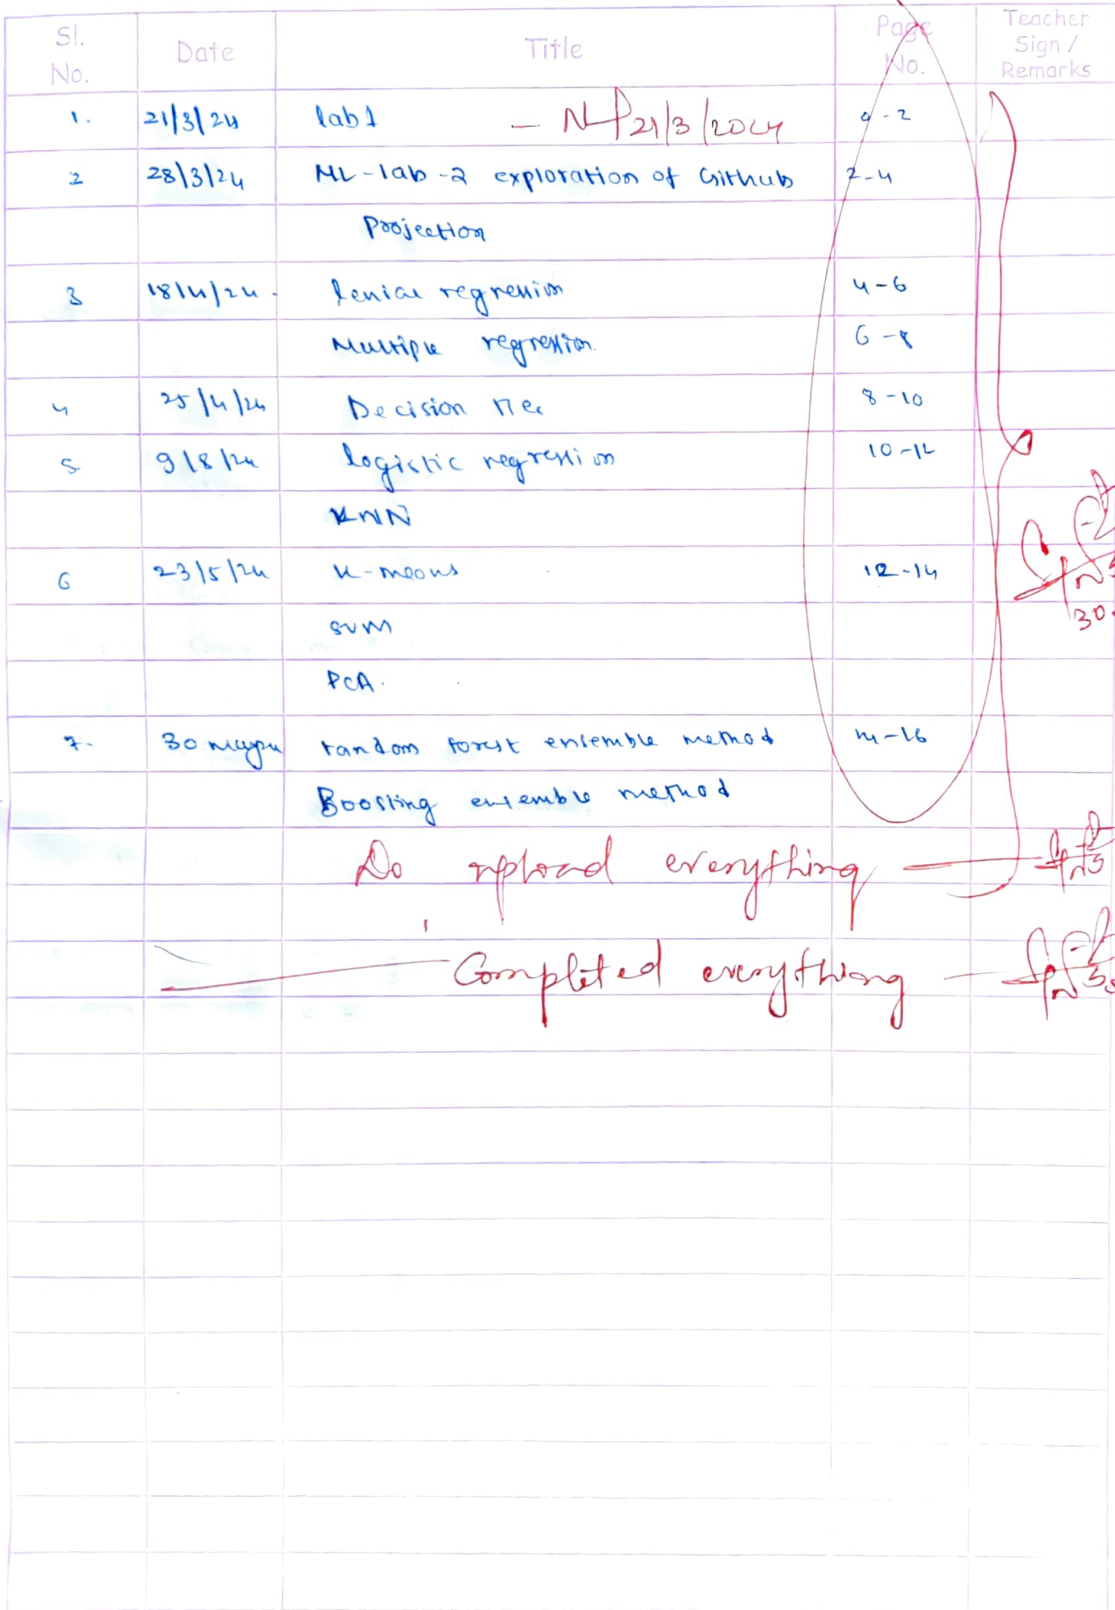 Sl. No. Date Title Page No. Teacher Sign / Remarks
1. 21/3/24 lab1 - 21/3/2024 0-2
2 28/3/24 ML-lab-2 exploration of Github 2-4
Projection
3 18/4/24. leniar regression 4-6
Multiple regression. 6-8
4 25/4/24 Decision tree 8-10
5. 9/8/24 logistic regression 10-12
KNN
6 23/5/24 K-means 12-14
SVM
PCA.
7. 30 random forest ensemble method 14-16
Boosting ensemble method
Do upload everything
Completed everything